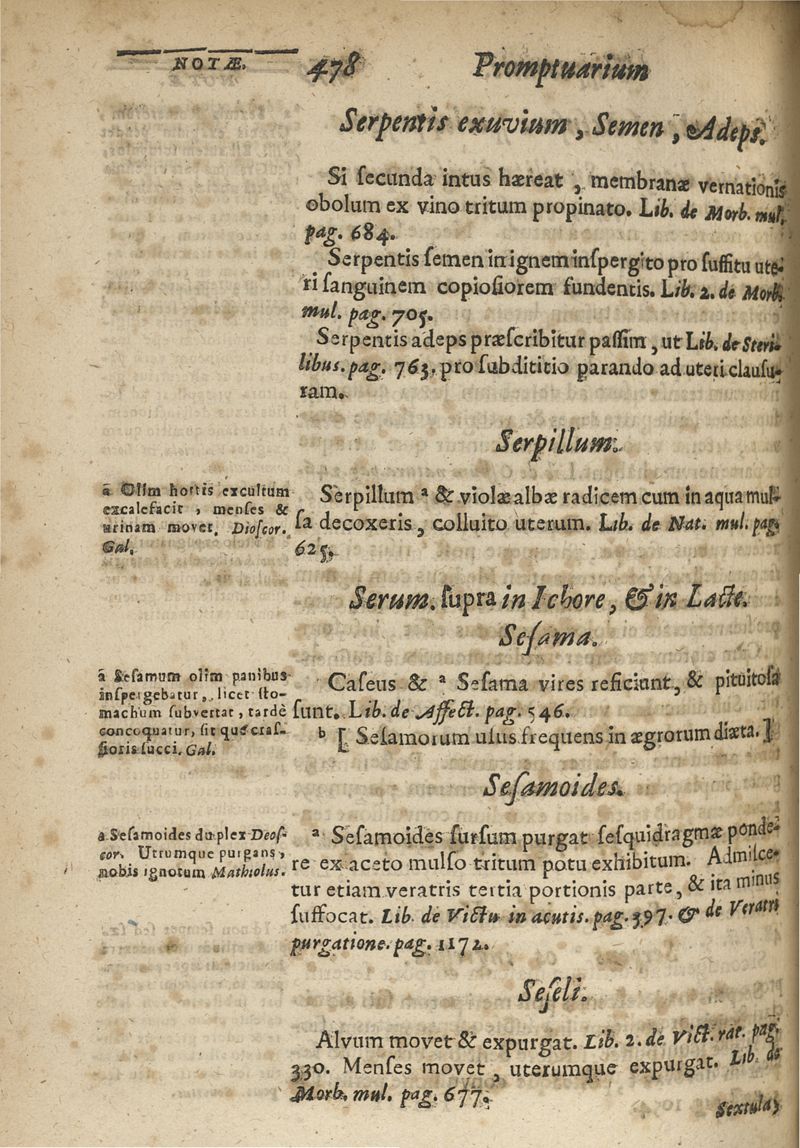 NOTÆ.
478
Promptuarium
Serpentis exuvium, Semen, Adeps.
Si ſecunda intus hæreat, membranæ vernationis
obolum ex vino tritum propinato. Lib. de Morb. mul.
pag. 684.
Serpentis ſemen in ignem inſpergito pro ſuffitu ute-
ri ſanguinem copioſiorem fundentis. Lib. 2. de Morb.
mul. pag. 705.
Serpentis adeps præſcribitur paſſim, ut Lib. de Steri-
libus. pag. 763. pro ſubdititio parando ad uteri clauſu-
ram.
Serpillum.
a Olim hortis excultum
excalefacit, menſes &
urinam movet. Dioſcor.
Gal.
Serpillum a & violæ albæ radicem cum in aqua mul-
ſa decoxeris, colluito uterum. Lib. de Nat. mul. pag.
625.
Serum. ſupra in Ichore, & in Lacte.
Seſama.
a Seſamum olim panibus
inſpergebatur, licet ſto-
machum ſubvertat, tardè
concoquatur, ſitque craſ-
ſioris ſucci. Gal.
Caſeus & a Seſama vires reficiunt, & pituitoſa
ſunt. Lib. de Affect. pag. 546.
b [ Seſamorum uſus frequens in ægrotum diæta. ]
Seſamoides.
a Seſamoides duplex Deoſ-
cor. Utrumque purgans,
nobis ignotum Mathiolus.
a Seſamoides ſurſum purgat ſeſquidragmæ ponde-
re ex aceto mulſo tritum potu exhibitum. Admiſce-
tur etiam veratris tertia portionis parte, & ita minus
ſuffocat. Lib. de Victu in acutis. pag. 397. & de Veratri
purgatione. pag. 1172.
Seſeli.
Alvum movet & expurgat. Lib. 2. de Vict. rat. pag.
330. Menſes movet, uterumque expurgat. Lib. de
Morb. mul. pag. 677.
Sextula,